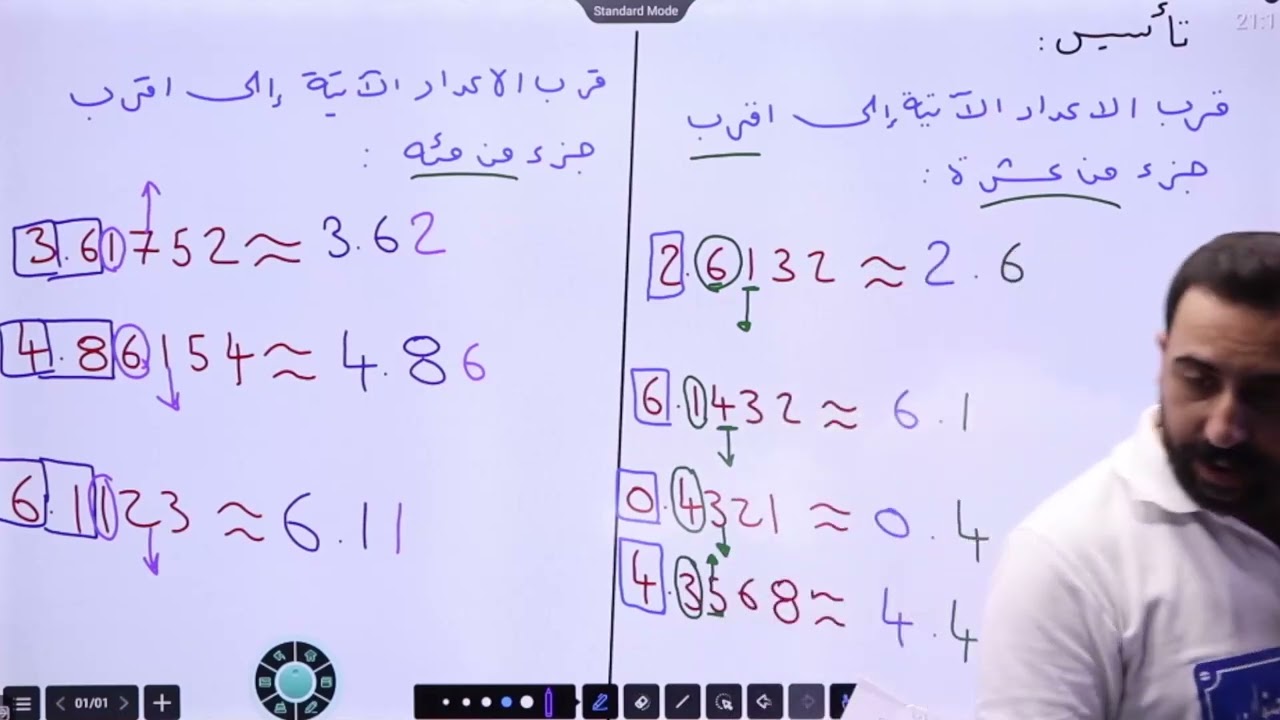 Standard Mode
21:1
تأسيس :
قرب الاعداد الآتية إلى اقرب
جزء من عشرة :
2.6132 ≈ 2.6
6.1432 ≈ 6.1
0.4321 ≈ 0.4
4.3568 ≈ 4.4
قرب الاعداد الآتية إلى اقرب
جزء من مئه :
3.61752 ≈ 3.62
4.86154 ≈ 4.86
6.1123 ≈ 6.11
01/01